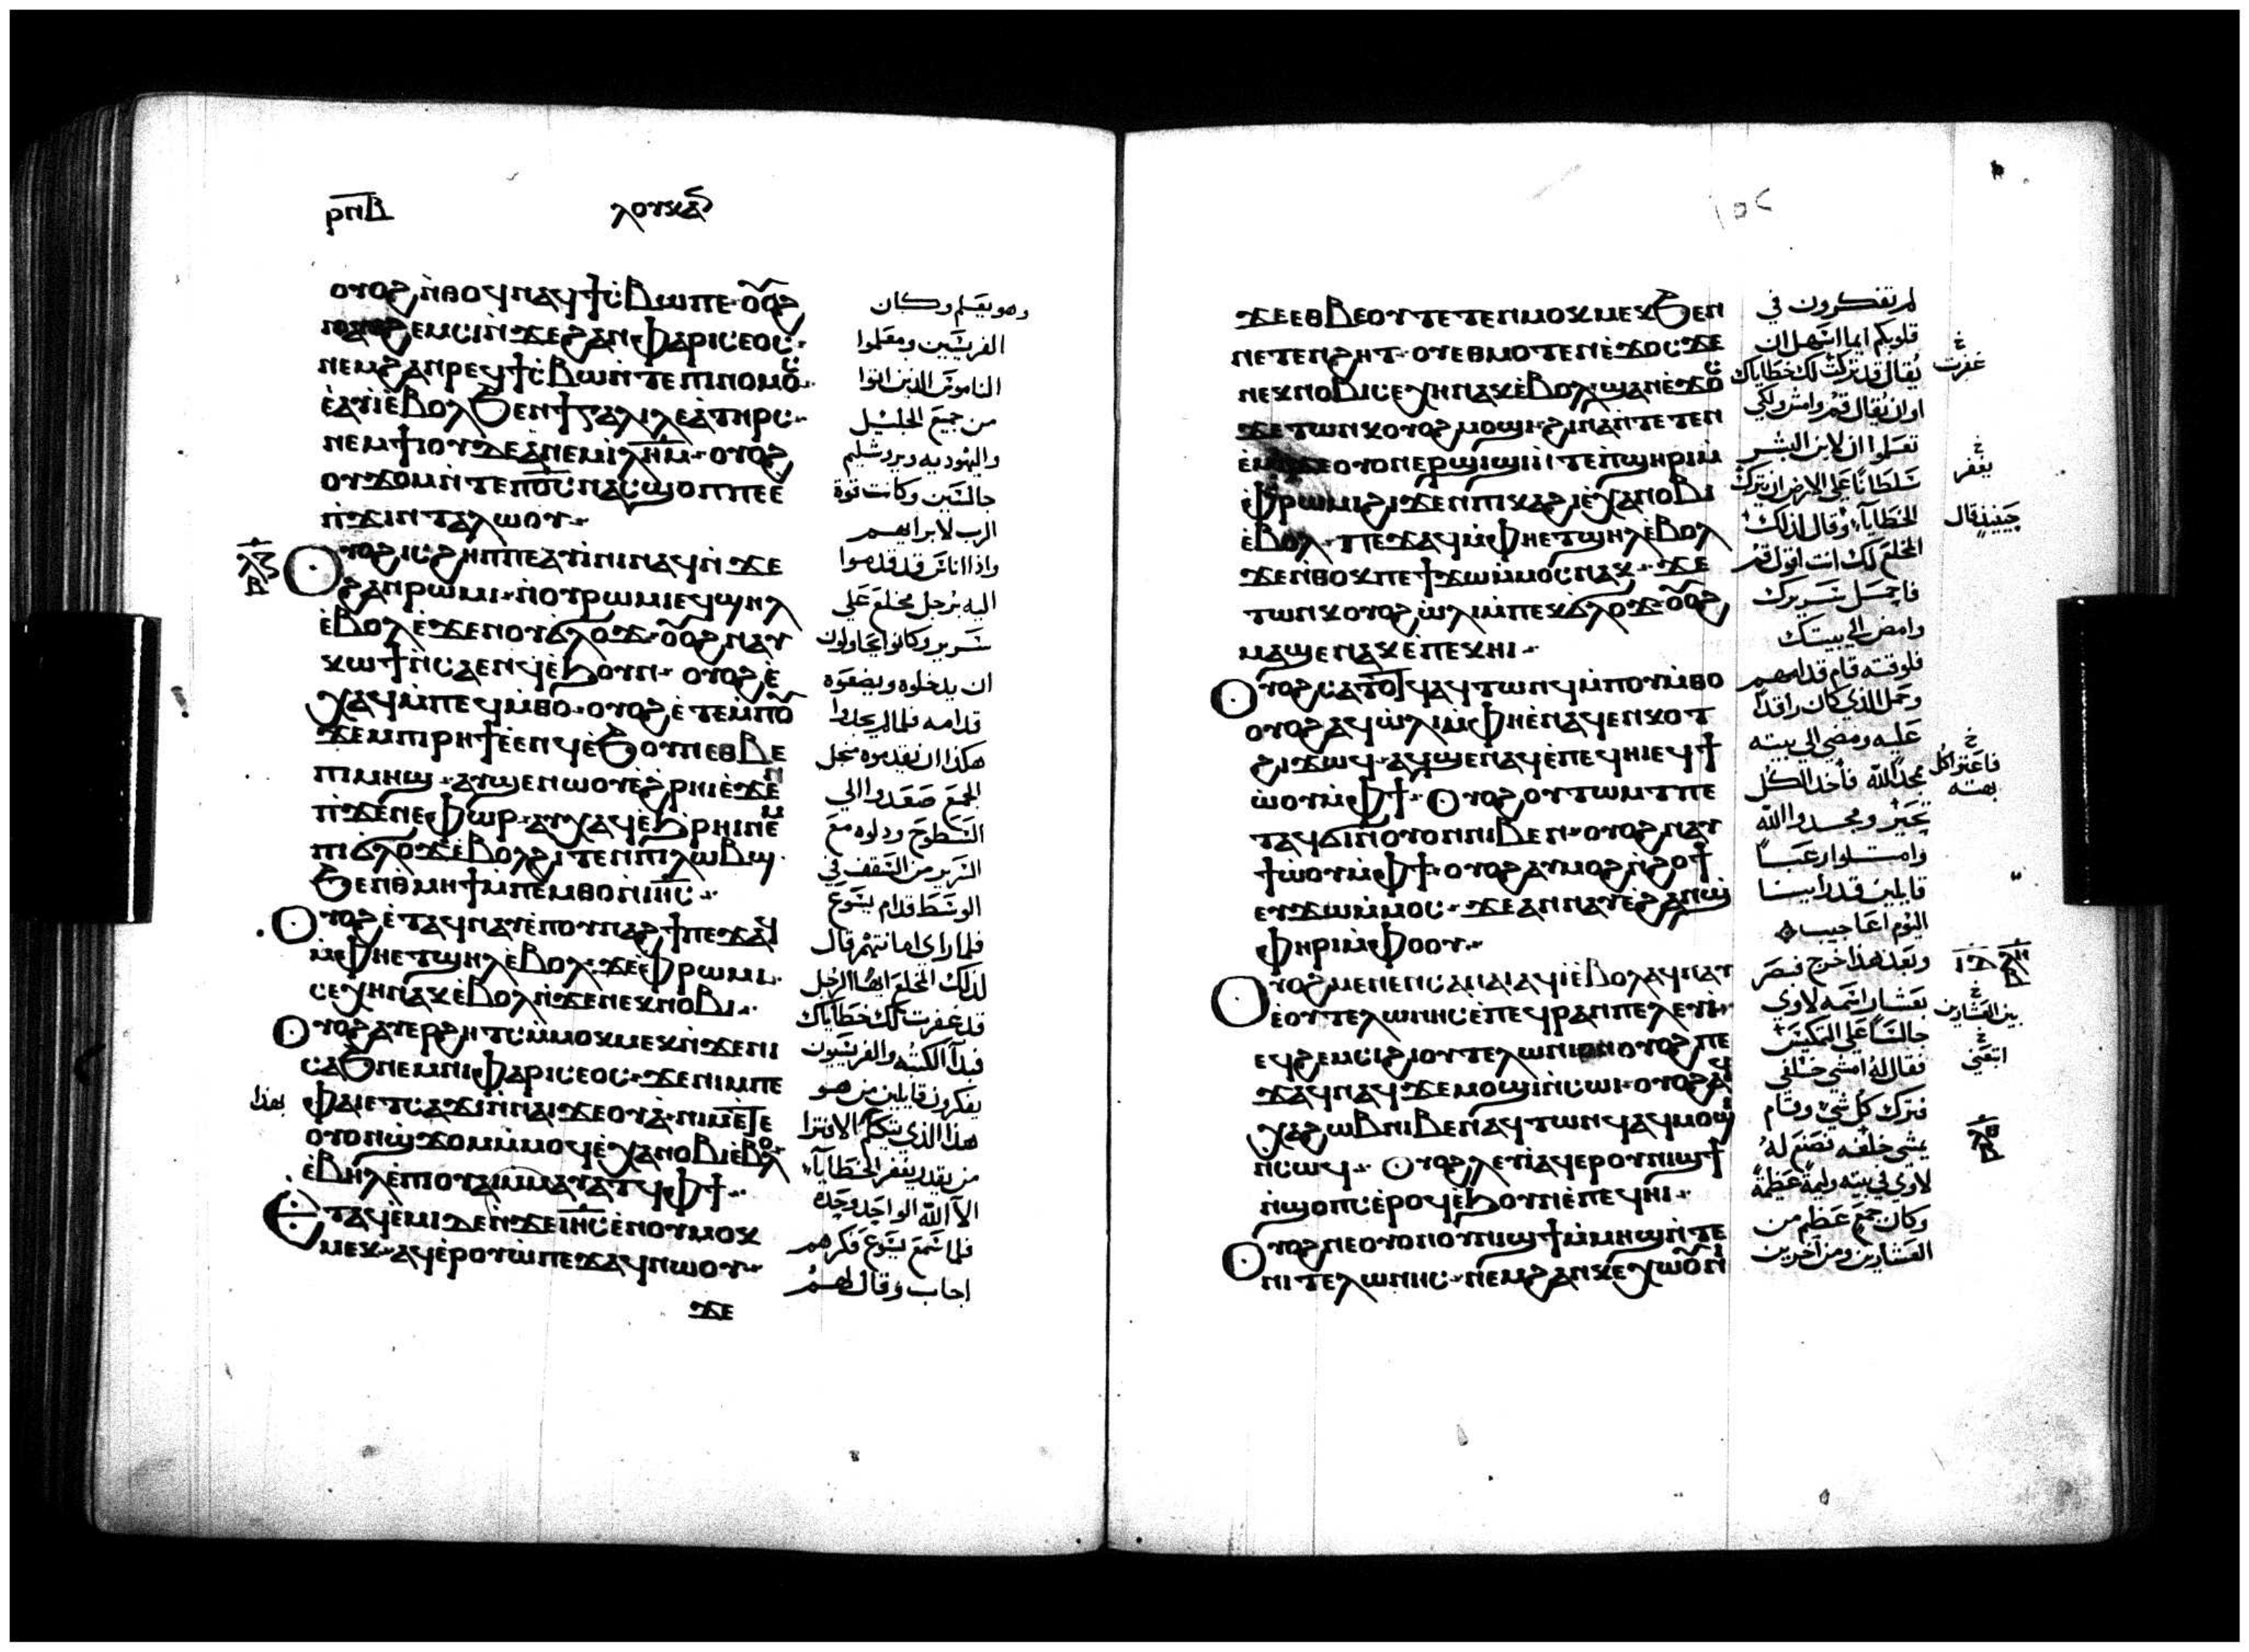 ⲣⲛⲃ
ⲗⲟⲩⲕⲁⲥ
ⲟⲩⲟϩ ⲛ̀ⲑⲟϥ ⲛⲁϥϯⲥⲃⲱ ⲡⲉ ⲟⲩⲟϩ
ⲛⲁⲩϩⲉⲙⲥⲓ ⲛ̀ϫⲉ ϩⲁⲛⲫⲁⲣⲓⲥⲉⲟⲥ
ⲛⲉⲙ ϩⲁⲛⲣⲉϥϯⲥⲃⲱ ⲛ̀ⲧⲉ ⲡⲓⲛⲟⲙⲟⲥ
ⲉ̀ⲁⲩⲓ̀ ⲉⲃⲟⲗ ϧⲉⲛ ϯⲅⲁⲗⲓⲗⲉⲁ ⲧⲏⲣⲥ
ⲛⲉⲙ ϯⲓⲟⲩⲇⲉⲁ ⲛⲉⲙ ⲓⲗⲏⲙ ⲟⲩⲟϩ
ⲟⲩϫⲟⲙ ⲛ̀ⲧⲉ ⲡⲟⲥ ⲛⲁⲥϣⲟⲡ ⲡⲉ ⲉ
ⲡ̀ϫⲓⲛⲧⲁⲗϭⲱⲟⲩ
ⲟⲩⲟϩ ⲓⲥ ϩⲏⲡⲡⲉ ⲁⲩⲓ̀ⲛⲓ ⲛⲁϥ ⲛ̀ϫⲉ
ϩⲁⲛⲣⲱⲙⲓ ⲛ̀ⲟⲩⲣⲱⲙⲓ ⲉϥϣⲏⲗ
ⲉ̀ⲃⲟⲗ ϩⲓϫⲉⲛ ⲟⲩϭⲗⲟϫ ⲟⲩⲟϩ ⲛⲁⲩ
ⲕⲱϯ ⲛ̀ⲥⲁ ⲉⲛϥ ⲉ̀ϧⲟⲩⲛ ⲟⲩⲟϩ ⲉ̀
ⲭⲁϥ ⲙ̀ⲡⲉϥⲙ̀ⲑⲟ ⲟⲩⲟϩ ⲉ̀ⲧⲉⲙⲡⲟⲩ
ϫⲉⲙ ⲡⲓⲣⲏϯ ⲉ̀ⲉⲛϥ ⲉ̀ϧⲟⲩⲛ ⲉⲑⲃⲉ
ⲡⲓⲙⲏϣ ⲁⲩϣⲉⲛⲱⲟⲩ ⲉ̀ϩⲣⲏⲓ ⲉ̀ϫⲉⲛ
ⲡ̀ϫⲉⲛⲉⲫⲱⲣ ⲁⲩⲭⲁϥ ⲉϧⲣⲏⲓ ⲛⲉⲙ
ⲡⲓϭⲗⲟϫ ⲉ̀ⲃⲟⲗ ϩⲓⲧⲉⲛ ⲡⲓⲗⲱⲃϣ
ϧⲉⲛ ⲑⲙⲏϯ ⲙ̀ⲡⲉⲙⲑⲟ ⲛ̀ⲓⲏⲥ
ⲟⲩⲟϩ ⲉ̀ⲧⲁϥⲛⲁⲩ ⲉ̀ⲡⲟⲩⲛⲁϩϯ ⲡⲉϫⲁϥ
ⲙ̀ⲫⲏ ⲉⲧϣⲏⲗ ⲉ̀ⲃⲟⲗ ϫⲉ ⲫⲣⲱⲙⲓ
ⲥⲉⲭⲏ ⲛⲁⲕ ⲉ̀ⲃⲟⲗ ⲛ̀ϫⲉ ⲛⲉⲕⲛⲟⲃⲓ
ⲟⲩⲟϩ ⲁⲩⲉⲣϩⲏⲧⲥ ⲙ̀ⲙⲟⲕⲙⲉⲕ ⲛ̀ϫⲉ ⲛⲓ
ⲥⲁϧ ⲛⲉⲙ ⲛⲓⲫⲁⲣⲓⲥⲉⲟⲥ ϫⲉ ⲛⲓⲙ ⲡⲉ
ⲫⲁⲓ ⲉⲧⲥⲁϫⲓ ⲛ̀ⲛⲁⲓϫⲉⲟⲩⲁ ⲛⲓⲙ ⲉⲧⲉ
ⲟⲩⲟⲛ ϣϫⲟⲙ ⲙ̀ⲙⲟϥ ⲉ̀ⲭⲁ ⲛⲟⲃⲓ ⲉⲃⲟⲗ
ⲉ̀ⲃⲏⲗ ⲉ̀ⲡⲓⲟⲩⲁⲓ ⲙ̀ⲙⲁⲩⲁⲧϥ ⲫϯ
ⲉⲧⲁϥⲉⲙⲓ ⲇⲉ ⲛ̀ϫⲉ ⲓⲏⲥ ⲉ̀ⲛⲟⲩⲙⲟⲕ
ⲙⲉⲕ ⲁϥⲉ̀ⲣⲟⲩⲱ̀ ⲡⲉϫⲁϥ ⲛⲱⲟⲩ
ϫⲉ
وهو يعلم وكان
الفريسيين ومعلموا
الناموس الذين اتوا
من جميع الجليل
واليهوديه ويروشليم
جالسين وكانت قوة
الرب لابرايهم
واذا اناس قد قدموا
اليه برجل مخلع علي
سرير وكانوا يحاولون
ان يدخلوه ويضعوه
قدامه فلما لم يجدوا
هكذا ان يقدموه لاجل
الجمع صعدوا الي
السطوح ودلوه مع
السرير من السقف في
الوسط قدام يسوع
فلما راى امانتهم قال
لذلك المخلع ايها الرجل
قد غفرت لك خطاياك
فبدا الكتبه والفريسيون
يفكرون قايلين من هو
هذا الذي يتكلم الافترا
بهذا
من يقدر يغفر الخطايا
الا الله الواحد وحده
فلما سمع يسوع فكرهم
اجاب وقال لهم
ϫⲉ ⲉⲑⲃⲉⲟⲩ ⲧⲉⲧⲉⲛⲙⲟⲕⲙⲉⲕ ϧⲉⲛ
ⲛⲉⲧⲉⲛϩⲏⲧ ⲟⲩ ⲉⲑⲙⲟⲧⲉⲛ ⲉ̀ϫⲟⲥ ϫⲉ
ⲛⲉⲕⲛⲟⲃⲓ ⲥⲉⲭⲏ ⲛⲁⲕ ⲉ̀ⲃⲟⲗ ϣⲁⲛ ⲉ̀ϫⲟⲥ
ϫⲉ ⲧⲱⲛⲕ ⲟⲩⲟϩ ⲙⲟϣⲓ ϩⲓⲛⲁ ⲛ̀ⲧⲉⲧⲉⲛ
ⲉ̀ⲙⲓ ϫⲉ ⲟⲩⲟⲛ ⲉⲣϣⲓϣⲓ ⲛ̀ⲧⲉ ⲡ̀ϣⲏⲣⲓ ⲙ̀
ⲫⲣⲱⲙⲓ ϩⲓϫⲉⲛ ⲡⲓⲕⲁϩⲓ ⲉ̀ⲭⲁ ⲛⲟⲃⲓ
ⲉ̀ⲃⲟⲗ ⲡⲉϫⲁϥ ⲙ̀ⲫⲏ ⲉⲧϣⲏⲗ ⲉ̀ⲃⲟⲗ
ϫⲉ ⲛ̀ⲑⲟⲕ ⲡⲉ ϯϫⲱ ⲙ̀ⲙⲟⲥ ⲛⲁⲕ ϫⲉ
ⲧⲱⲛⲕ ⲟⲩⲟϩ ⲱ̀ⲗⲓ ⲙ̀ⲡⲉⲕϭⲗⲟϫ ⲟⲩⲟϩ
ⲙⲁϣⲉⲛⲁⲕ ⲉ̀ⲡⲉⲕⲏⲓ
ⲟⲩⲟϩ ⲥⲁⲧⲟⲧϥ ⲁϥⲧⲱⲛϥ ⲙ̀ⲡⲟⲩⲙ̀ⲑⲟ
ⲟⲩⲟϩ ⲁϥⲱ̀ⲗⲓ ⲙ̀ⲫⲏ ⲉ̀ⲛⲁϥⲉⲛⲕⲟⲧ
ϩⲓϫⲱϥ ⲁϥϣⲉⲛⲁϥ ⲉ̀ⲡⲉϥⲏⲓ ⲉϥϯ
ⲱ̀ⲟⲩ ⲙ̀ⲫϯ ⲟⲩⲟϩ ⲟⲩⲧⲱⲙⲧ ⲡⲉ
ⲧⲁϥϭⲓ ⲛ̀ⲟⲩⲟⲛ ⲛⲓⲃⲉⲛ ⲟⲩⲟϩ ⲛⲁⲩ
ϯⲱ̀ⲟⲩ ⲙ̀ⲫϯ ⲟⲩⲟϩ ⲁⲩⲙⲟϩ ⲛ̀ϩⲟϯ
ⲉⲩϫⲱ ⲙ̀ⲙⲟⲥ ϫⲉ ⲁⲛⲛⲁⲩ ⲉ̀ϩⲁⲛϣ̀
ⲫⲏⲣⲓ ⲙ̀ⲫⲟⲟⲩ
ⲟⲩⲟϩ ⲙⲉⲛⲉⲛⲥⲁ ⲛⲁⲓ ⲁϥⲓ̀ ⲉⲃⲟⲗ ⲁϥⲛⲁⲩ
ⲉ̀ⲟⲩⲧⲉⲗⲱⲛⲏⲥ ⲉ̀ⲡⲉϥⲣⲁⲛ ⲡⲉ ⲗⲉⲩⲓ̀
ⲉϥϩⲉⲙⲥⲓ ϩⲓ ⲟⲩⲧⲉⲗⲱⲛⲓⲟⲛ ⲟⲩⲟϩ ⲡⲉ
ϫⲁϥ ⲛⲁϥ ϫⲉ ⲙⲟϣⲓ ⲛ̀ⲥⲱⲓ ⲟⲩⲟϩ ⲁϥ
ⲭⲁ ϩⲱⲃ ⲛⲓⲃⲉⲛ ⲁϥⲧⲱⲛϥ ⲁϥⲙⲟϣⲓ
ⲛ̀ⲥⲱϥ ⲟⲩⲟϩ ⲗⲉⲩⲓ ⲁϥⲉⲣ ⲟⲩⲛⲓϣϯ
ⲛ̀ϣⲟⲡⲥ ⲉ̀ⲣⲟϥ ⲉ̀ϧⲟⲩⲛ ⲉ̀ⲡⲉϥⲏⲓ
ⲟⲩⲟϩ ⲛⲉ ⲟⲩⲟⲛ ⲟⲩⲛⲓϣϯ ⲙ̀ⲙⲏϣ ⲛ̀ⲧⲉ
ⲛⲓⲧⲉⲗⲱⲛⲏⲥ ⲛⲉⲙ ϩⲁⲛⲕⲉⲭⲱⲟⲩⲛⲓ
لم تفكرون في
قلوبكم ايما اسهل ان
يقال قد تركت لك خطاياك
غفرت
او ان يقال قم وامش ولكي
تعلموا ان لابن البشر
سلطانا على الارض ان يترك
يغفر
الخطايا وقال لذلك
حينيذ قال
المخلع لك انت اقول قم
فاحمل سريرك
وامض الي بيتك
فلوقته قام قدامهم
وحمل الذي كان راقدا
عليه ومضي الي بيته
يمجد الله فاخذ الكل
فاعترا كل
بهته
تحير ومجدوا الله
وامتلوا رعبا
قايلين قد راينا
اليوم اعاجيب
وبعد هذا خرج فبصر
بعشار اسمه لاوي
جالسا على المكس
بين العشارين
فقال له امشي خلفي
اتبعني
فترك كل شي وقام
يمشي خلفه فصنع له
لاوي في بيته وليمة عظيمة
وكان جمع عظيم من
العشارين ومن اخرين